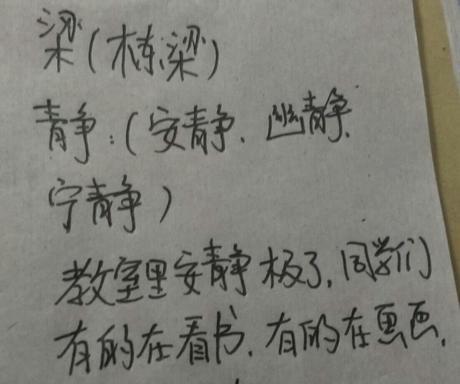 梁(栋梁)
静:(安静、幽静、
宁静)
教室里安静极了,同学们
有的在看书,有的在画画,